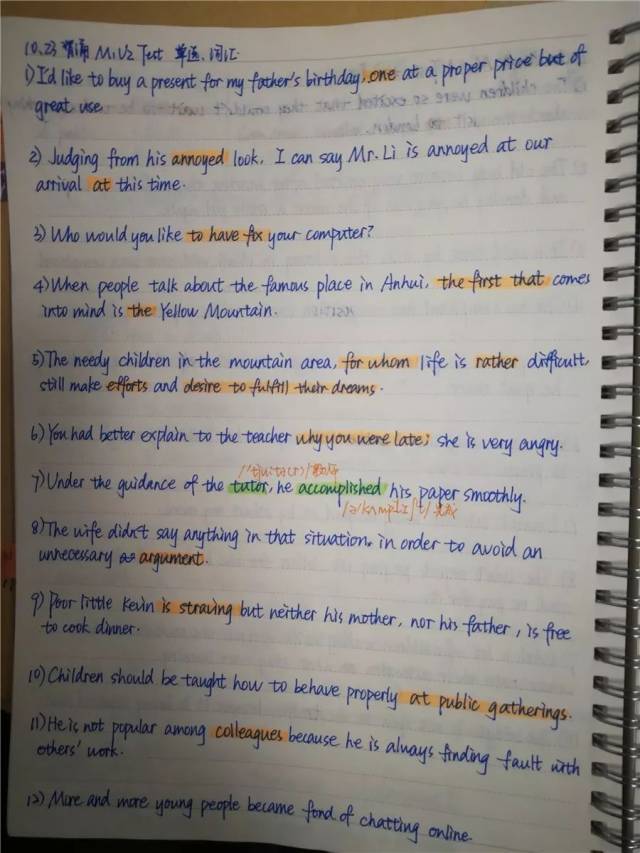 10.23 背诵 M1U2 Test 单选、词汇.
1) I'd like to buy a present for my father's birthday, one at a proper price but of
great use.
2) Judging from his annoyed look, I can say Mr. Li is annoyed at our
arrival at this time.
3) Who would you like to have fix your computer?
4) When people talk about the famous place in Anhui, the first that comes
into mind is the Yellow Mountain.
5) The needy children in the mountain area, for whom life is rather difficult,
still make efforts and desire to fulfill their dreams.
6) You had better explain to the teacher why you were late; she is very angry.
/'tjuːtə(r)/ 教师
7) Under the guidance of the tutor, he accomplished his paper smoothly.
/ə'kʌmplɪʃt/ 完成
8) The wife didn't say anything in that situation, in order to avoid an
unnecessary argument.
9) Poor little Kevin is straving but neither his mother, nor his father, is free
to cook dinner.
10) Children should be taught how to behave properly at public gatherings.
11) He is not popular among colleagues because he is always finding fault with
others' work.
12) More and more young people became fond of chatting online.